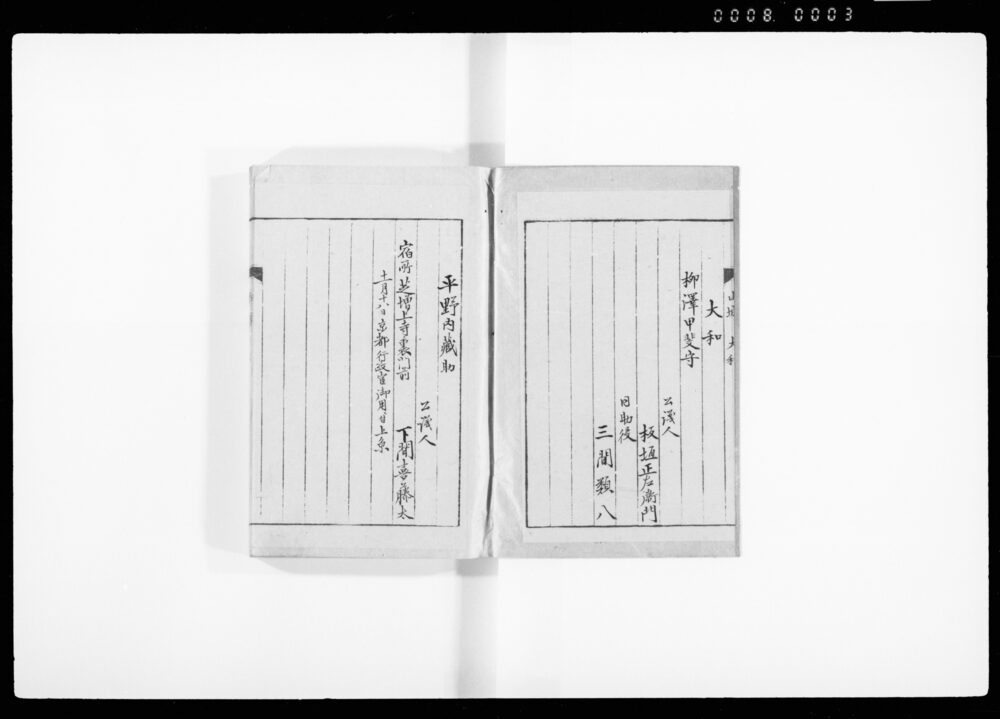 0008. 0003
山城 大和
大和
柳澤甲斐守
公議人
板垣正左衛門
同助役
三間類八
平野内藏助
公議人
宿所芝増上寺裏門前
下間喜藤太
十一月十八日京都行政官御用ニ付上京